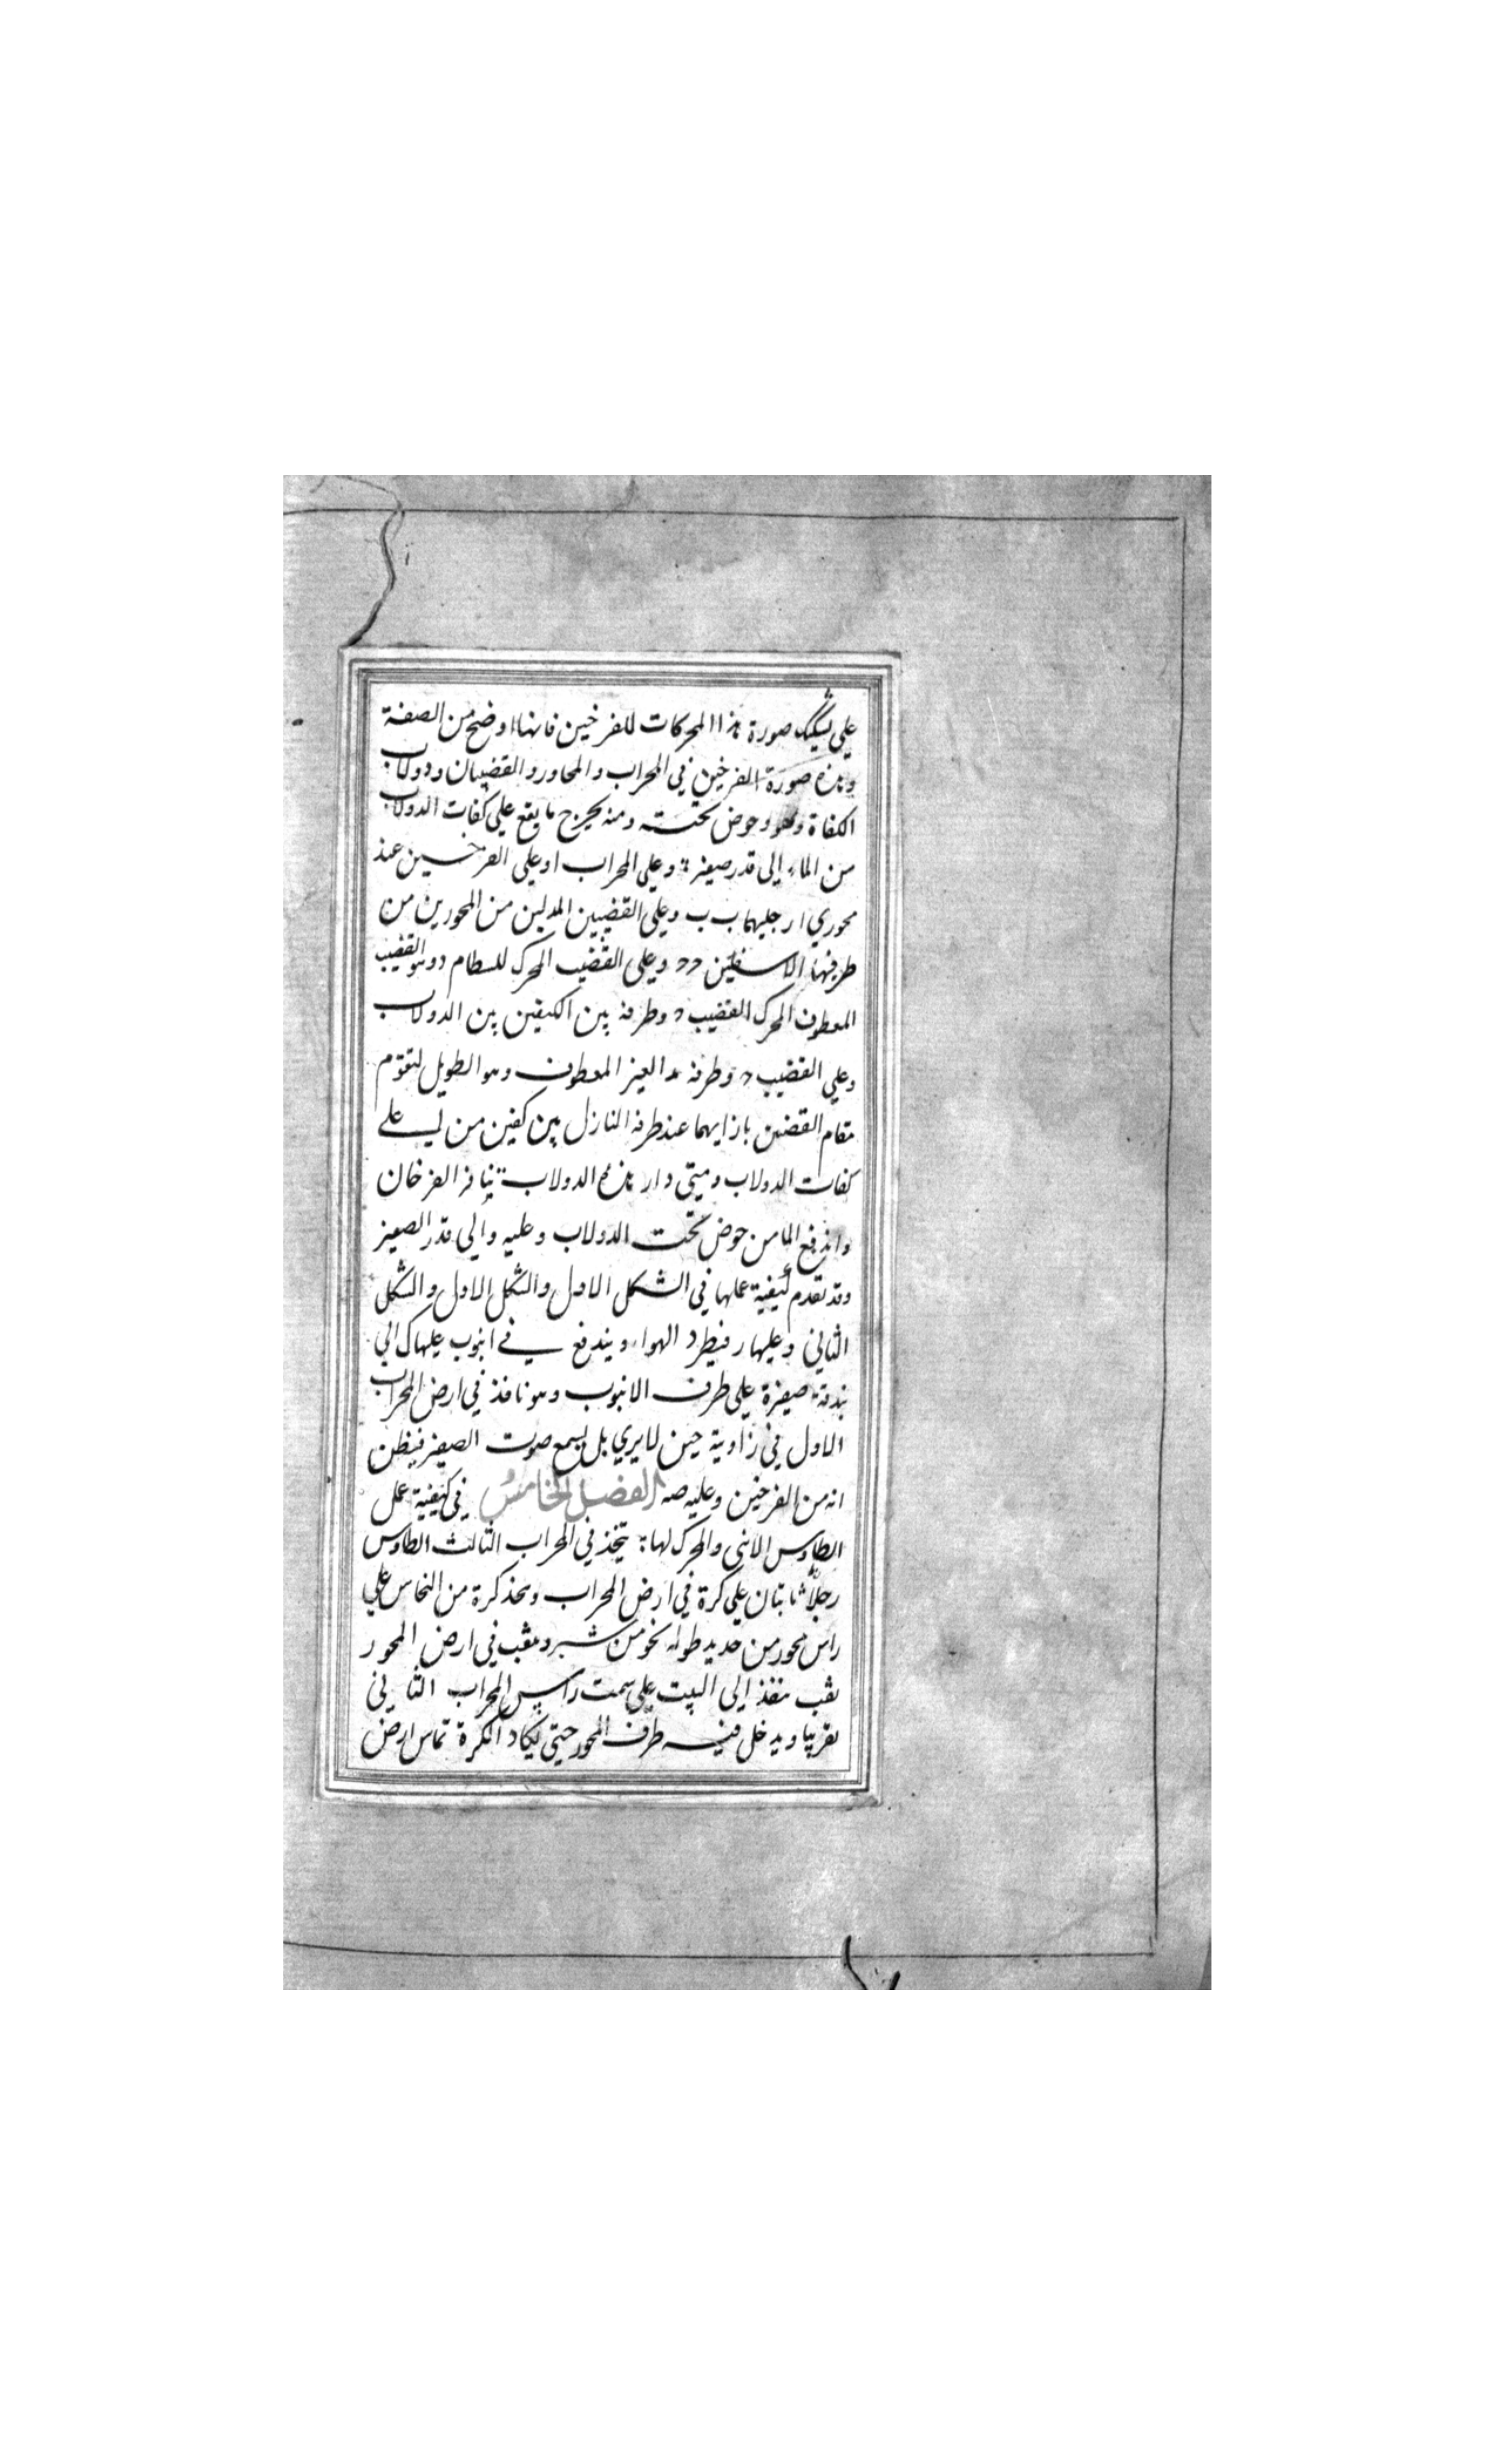 على تشكيك صورة هذا المحركات للفرخين فانها اوضح من الصفة
وهذه صورة الفرخين في المحراب والمحاور والقضيبان ودولاب
الكفاة وهو وحوض تحته ومنه يخرج ما يقع على كفات الدولاب
من الماء إلى قدر صغيرة وعلى المحراب ا وعلى الفرخين عند
محوري ارجليهما ب ب وعلى القضيبين المدلين من المحورين من
طرفيهما الاسفلين د د وعلى القضيب المحرك للسطام د وهو القضيب
المعطوف المحرك القضيب د وطرفه بين الكفين بين الدولاب
وعلى القضيب د وطرفه الغير المعطوف وهو الطويل لتقوم
مقام القضين بازايهما عند طرفه النازل بين كفين من على
كفات الدولاب ومتى دار هذه الدولاب تنافر الفرخان
واندفع الما من حوض تحت الدولاب وعليه و إلى قدر الصغير
وقد تقدم كيفية عملها في الشكل الاول والشكل الاول والشكل
الثاني وعليها ر فيطرد الهواء ويندفع في انبوب عليها ك الي
بندقة صغيرة على طرف الانبوب وهو نافذ في ارض المحراب
الاول في زاوية حين لا يري بل يسمع صوت الصفير فيظن
انه من الفرخين وعليه صه الفصل الخامس في كيفية عمل
الطاوس الانثى والمحرك لها يتخذ في المحراب الثالث الطاوس
رجلا ثابتان على كرة في ارض المحراب وتحذ كرة من النحاس على
راس محور من حديد طوله نحو من شبر و يثقب في ارض المحور
ثقب منفذ إلى البيت على سمت راس المحراب الثاني
تقريبا ويدخل فيه طرف المحور حتى تكاد الكرة تماس ارض